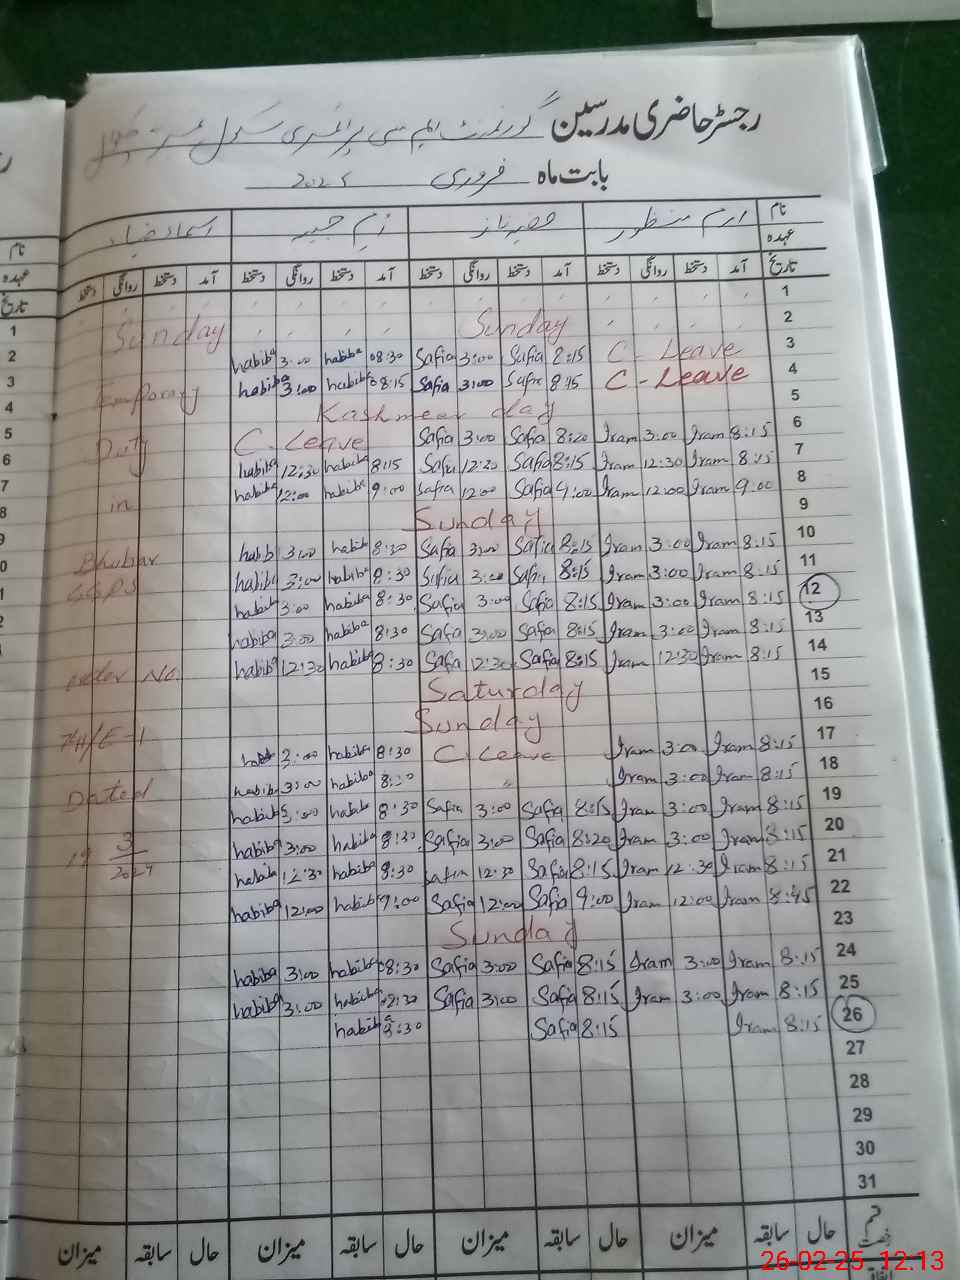 رجسٹر حاضری مدرسین گورنمنٹ ایم سی پرائمری سکول
بابت ماہ فروری 2025
نام ارم منظور صفیہ ناز اسماء ضیاء
عہدہ
تاریخ آمد دستخط روانگی دستخط آمد دستخط روانگی دستخط آمد دستخط روانگی دستخط آمد دستخط روانگی دستخط
1
Sunday Sunday 2
habiba 3:00 habiba 08:30 Safia 3:00 Safia 8:15 C-Leave 3
habiba 3:00 habiba 08:15 Safia 3:00 Safia 8:15 C-Leave 4
Kashmeer day 5
Duty C-Leave Safia 3:00 Safia 8:20 Iram 3:00 Iram 8:15 6
habiba 12:30 habiba 8:15 Safia 12:30 Safia 8:15 Iram 12:30 Iram 8:15 7
in habiba 12:00 habiba 9:00 Safia 12:00 Safia 9:00 Iram 12:00 Iram 9:00 8
Sunday 9
habib 3:00 habib 8:30 Safia 3:00 Safia 8:15 Iram 3:00 Iram 8:15 10
habib 3:00 habiba 8:30 Safia 3:00 Safia 8:15 Iram 3:00 Iram 8:15 11
habib 3:00 habiba 8:30 Safia 3:00 Safia 8:15 Iram 3:00 Iram 8:15 12
habiba 3:00 habiba 8:30 Safia 3:00 Safia 8:15 Iram 3:00 Iram 8:15 13
order No. habiba 12:30 habiba 8:30 Safia 12:30 Safia 8:15 Iram 12:30 Iram 8:15 14
Saturday 15
Sunday 16
3:00 habiba 8:30 C-Leave Iram 3:00 Iram 8:15 17
Dated habib 3:00 habiba 8:30 〃 Iram 3:00 Iram 8:15 18
habiba 3:00 habiba 8:30 Safia 3:00 Safia 8:15 Iram 3:00 Iram 8:15 19
habiba 3:00 habiba 8:30 Safia 3:00 Safia 8:20 Iram 3:00 Iram 8:15 20
habiba 12:30 habiba 8:30 Safia 12:30 Safia 8:15 Iram 12:30 Iram 8:15 21
habiba 12:00 habiba 9:00 Safia 12:00 Safia 9:00 Iram 12:00 Iram 8:45 22
Sunday 23
habiba 3:00 habiba 08:30 Safia 3:00 Safia 8:15 Iram 3:00 Iram 8:15 24
habiba 3:00 habiba 8:30 Safia 3:00 Safia 8:15 Iram 3:00 Iram 8:15 25
habiba 8:30 Safia 8:15 Iram 8:15 26
27
28
29
30
31
قسم رخصت حال سابقہ میزان حال سابقہ میزان حال سابقہ میزان حال سابقہ میزان
26-02-25 12.13